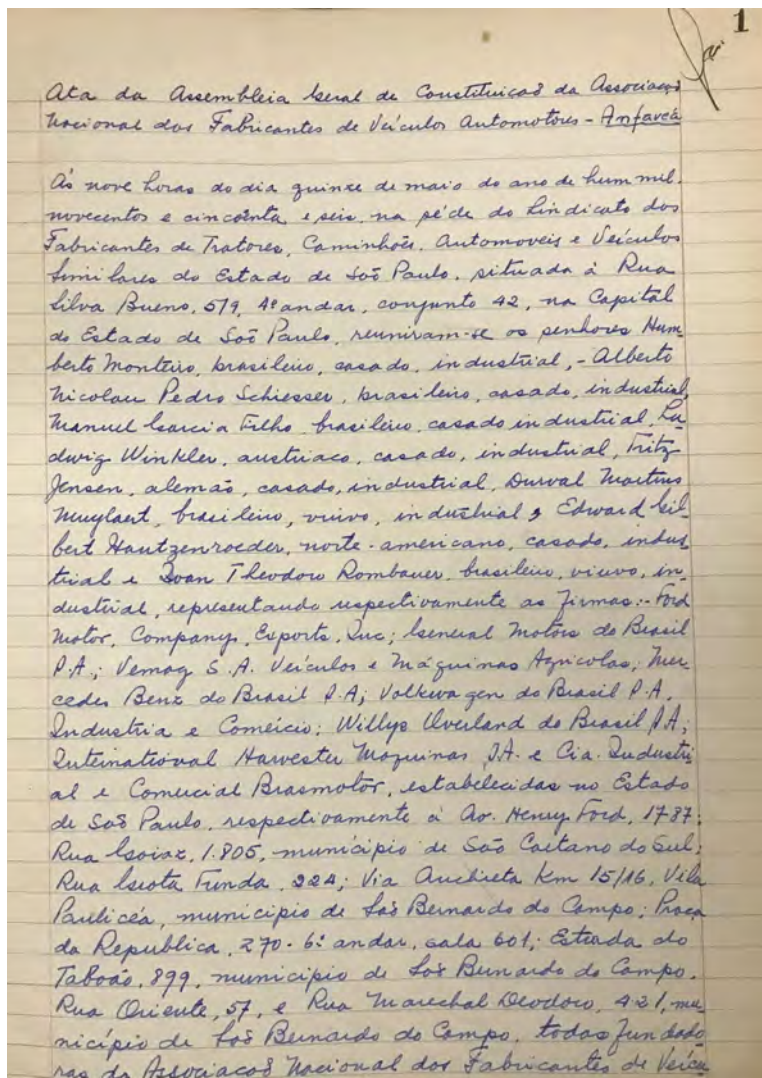 1
Ata da Assembleia Geral de Constituição da Associação
Nacional dos Fabricantes de Veículos Automotores - Anfavea
Ás nove horas do dia quinze de maio do ano de hum mil
novecentos e cincoênta e seis, na séde do Sindicato dos
Fabricantes de Tratores, Caminhões, Automoveis e Veículos
Similares do Estado de São Paulo, situada à Rua
Silva Bueno, 519, 4º andar, conjunto 42, na Capital
do Estado de São Paulo, reuniram-se os senhores Hum-
berto Monteiro, brasileiro, casado, industrial, - Alberto
Nicolau Pedro Schiesser, brasileiro, casado, industrial,
Manuel Garcia Filho brasileiro, casado industrial, Lu-
dwig Winkler, austriaco, casado, industrial, Fritz
Jensen, alemão, casado, industrial, Durval Martins
Muylaert, brasileiro, viuvo, industrial, Edward Gil-
bert Hautzenroeder, norte-americano, casado, indus-
trial e Ivan Theodoro Rombauer, brasileiro, viuvo, in-
dustrial, representando respectivamente as firmas:- Ford
Motor, Company, Exports, Inc; General Motors do Brasil
S.A.; Vemag S.A. Veículos e Máquinas Agricolas; Mer-
cedes Benz do Brasil S.A; Volkwagen do Brasil S.A.
Industria e Comércio; Willys Overland do Brasil S.A;
International Harvester Maquinas S.A. e Cia. Industri-
al e Comercial Brasmotor, estabelecidas no Estado
de São Paulo, respectivamente á Av. Henry Ford, 1787;
Rua Goiaz, 1.805, município de São Caetano do Sul;
Rua Grota Funda, 224; Via Anchieta Km 15/16, Vila
Paulicéa, municipio de São Bernardo do Campo; Praça
da Republica, 270 - 6º andar, sala 601; Estrada do
Taboão, 899, municipio de São Bernardo do Campo,
Rua Oriente, 57, e Rua Marechal Deodoro, 421, mu-
nicípio de São Bernardo do Campo, todas fundado-
ras da Associação Nacional dos Fabricantes de Veícu-